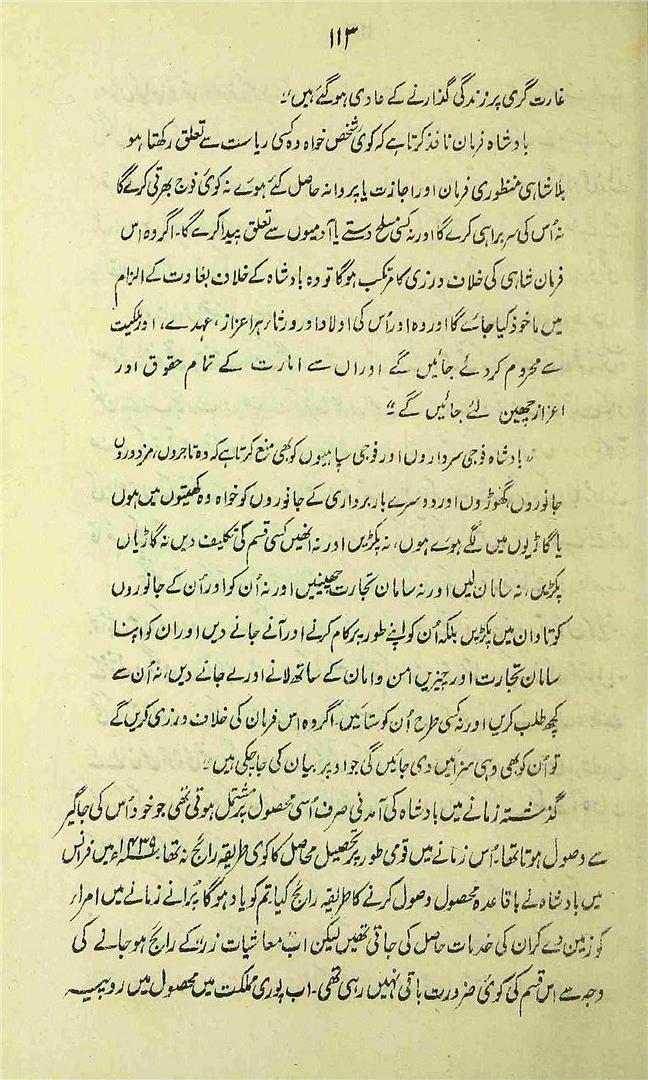 ۱۱۳
غارت گری پر زندگی گذارنے کے عادی ہو گئے ہیں"
بادشاہ فرمان نافذ کرتا ہے کہ کوئی شخص خواہ وہ کسی ریاست سے تعلق رکھتا ہو
بلا شاہی منظوری فرمان اور اجازت یا پروانہ حاصل کئے ہوئے نہ کوئی فوج بھرتی کرے گا
نہ اُس کی سربراہی کرے گا اور نہ کسی مسلح دستے یا آدمیوں سے تعلق پیدا کرے گا۔ اگر وہ اس
فرمان شاہی کی خلاف ورزی کا مرتکب ہوگا تو وہ بادشاہ کے خلاف بغاوت کے الزام
میں ماخوذ کیا جائے گا اور وہ اور اُس کی اولاد اور ورثار ہر اعزاز، عہدے، اور ملکیت
سے محروم کر دئے جائیں گے اور اں سے امارت کے تمام حقوق اور
اعزاز چھین لئے جائیں گے"
"بادشاہ فوجی سرداروں اور فوجی سپاہیوں کو بھی منع کرتا ہے کہ وہ تاجروں، مزدوروں
جانوروں، گھوڑوں اور دوسرے بار برداری کے جانوروں کو خواہ وہ کھیتوں میں ہوں
یا گاڑیوں میں لگے ہوئے ہوں، نہ پکڑیں اور نہ انھیں کسی قسم کی تکلیف دیں نہ گاڑیاں
پکڑیں، نہ سامان لیں اور نہ سامان تجارت چھینیں اور نہ اُن کو اور اُن کے جانوروں
کو تاوان میں پکڑیں بلکہ اُن کو اپنے طور پر کام کرنے اور آنے جانے دیں اور ان کو اپنا
سامان تجارت اور چیزیں امن و امان کے ساتھ لانے اور لے جانے دیں، نہ اُن سے
کچھ طلب کریں اور نہ کسی طرح اُن کو ستائیں۔ اگر وہ اس فرمان کی خلاف ورزی کریں گے
تو اُن کو بھی وہی سزائیں دی جائیں گی جو اوپر بیان کی جا چکی ہیں"
گذشتہ زمانے میں بادشاہ کی آمدنی صرف اُسی محصول پر مشتمل ہوتی تھی جو خود اُس کی جاگیر
سے وصول ہوتا تھا۔ اُس زمانے میں قومی طور پر تحصیل محاصل کا کوئی طریقہ رائج نہ تھا۔ ۱۴۳۹ء میں فرانس
میں بادشاہ نے باقاعدہ محصول وصول کرنے کا طریقہ رائج کیا۔ تم کو یاد ہوگا پُرانے زمانے میں امراء
کو زمین دے کر ان کی خدمات حاصل کی جاتی تھیں لیکن اب "معاشیات زر" کے رائج ہو جانے کی
وجہ سے اس قسم کی کوئی ضرورت باقی نہیں رہی تھی۔ اب پوری مملکت میں محصول میں روپیہ